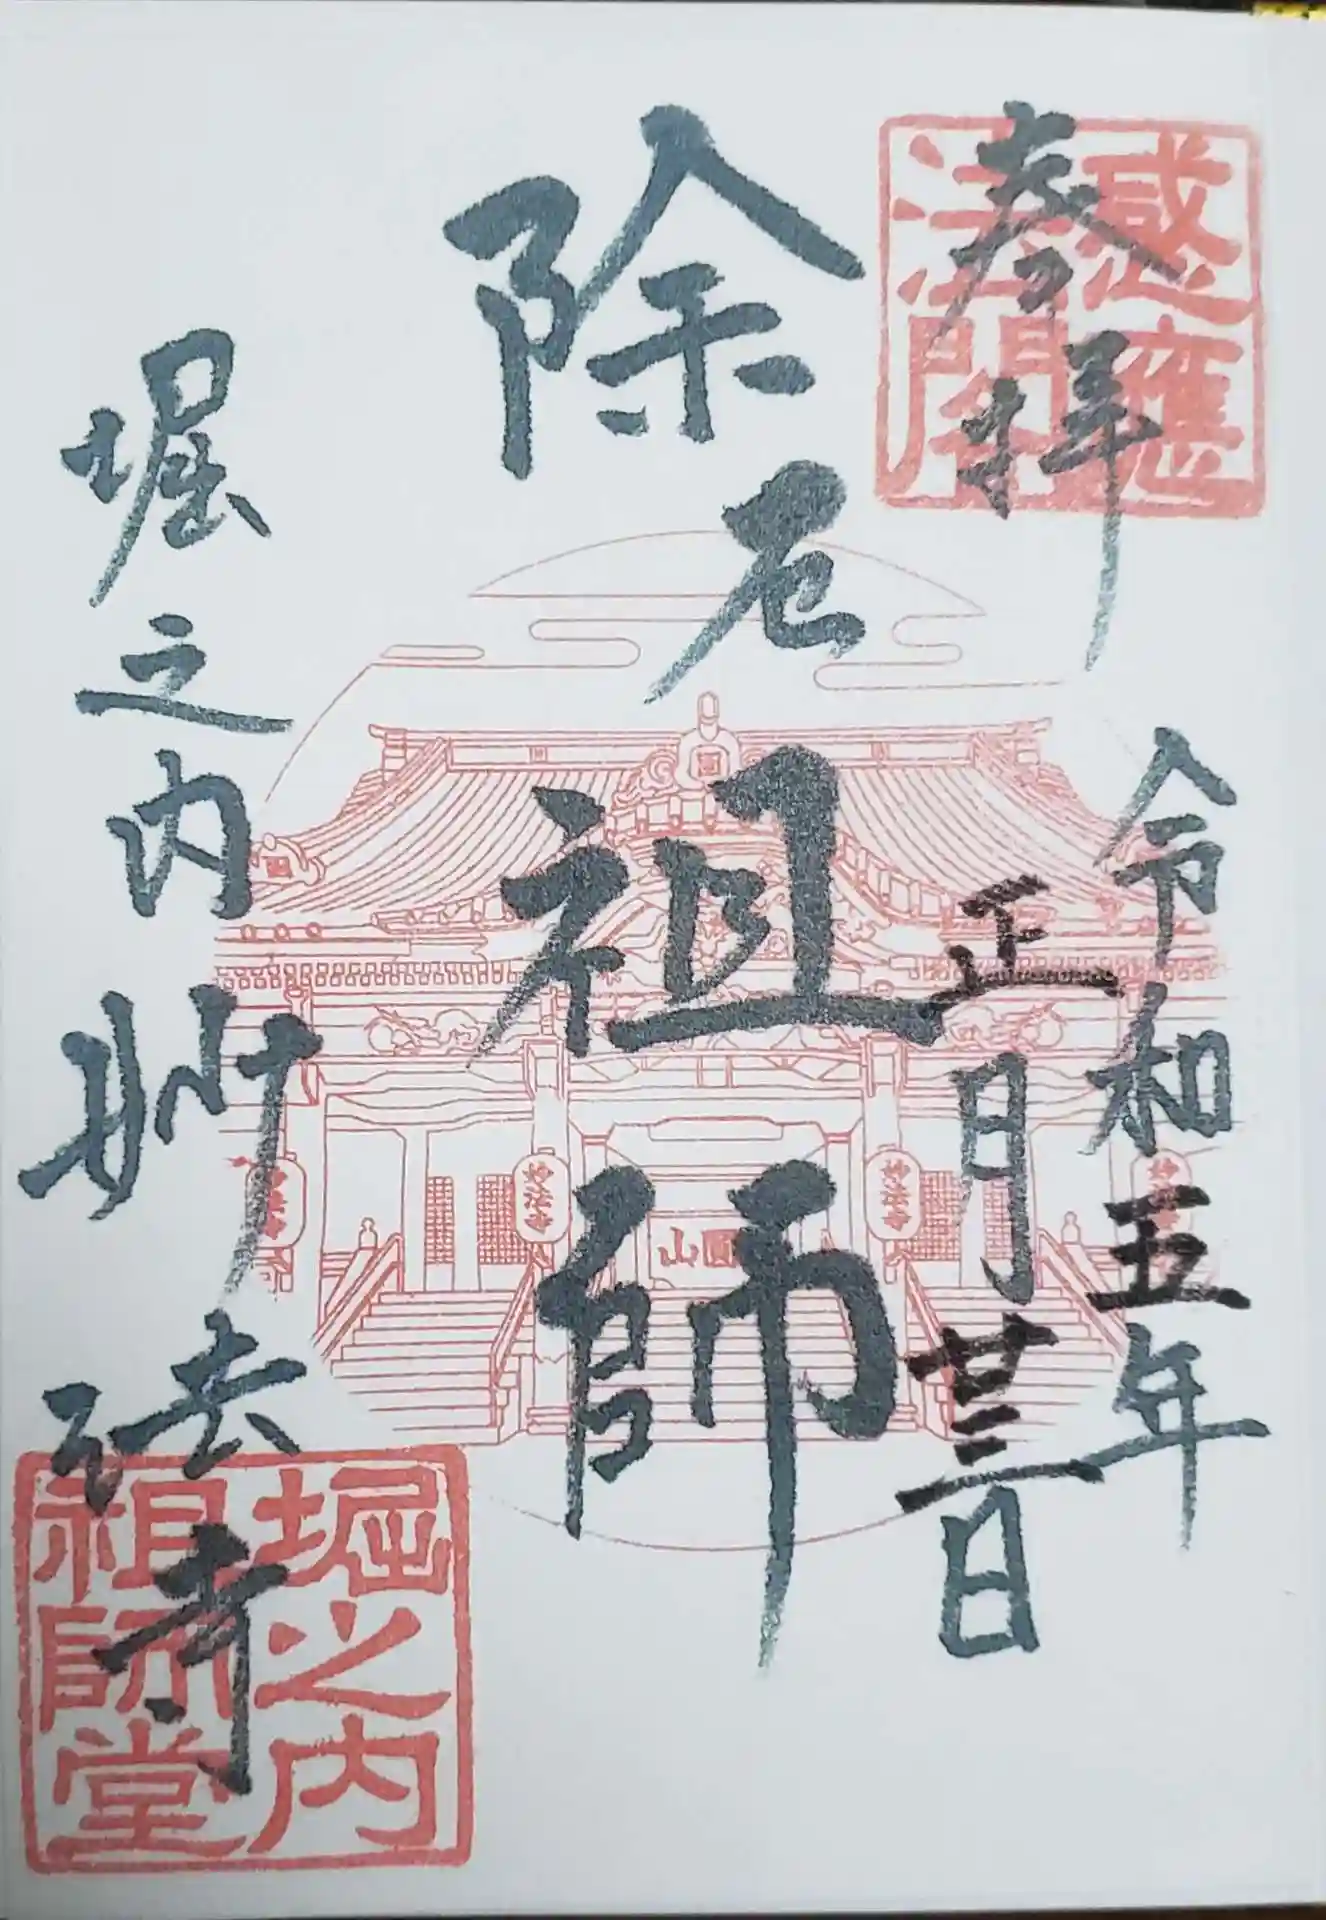 奉拝
令和五年
正月廿三日
除厄
祖師
堀之内
妙法寺
感應
法閣
堀之内
祖師堂
妙法寺
妙法寺
圓山